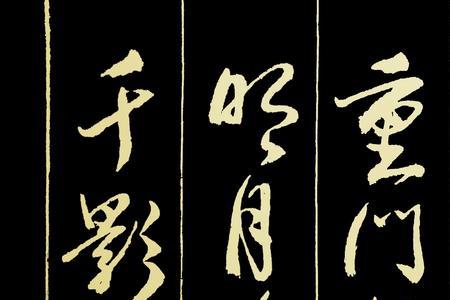 重門
明月
千影